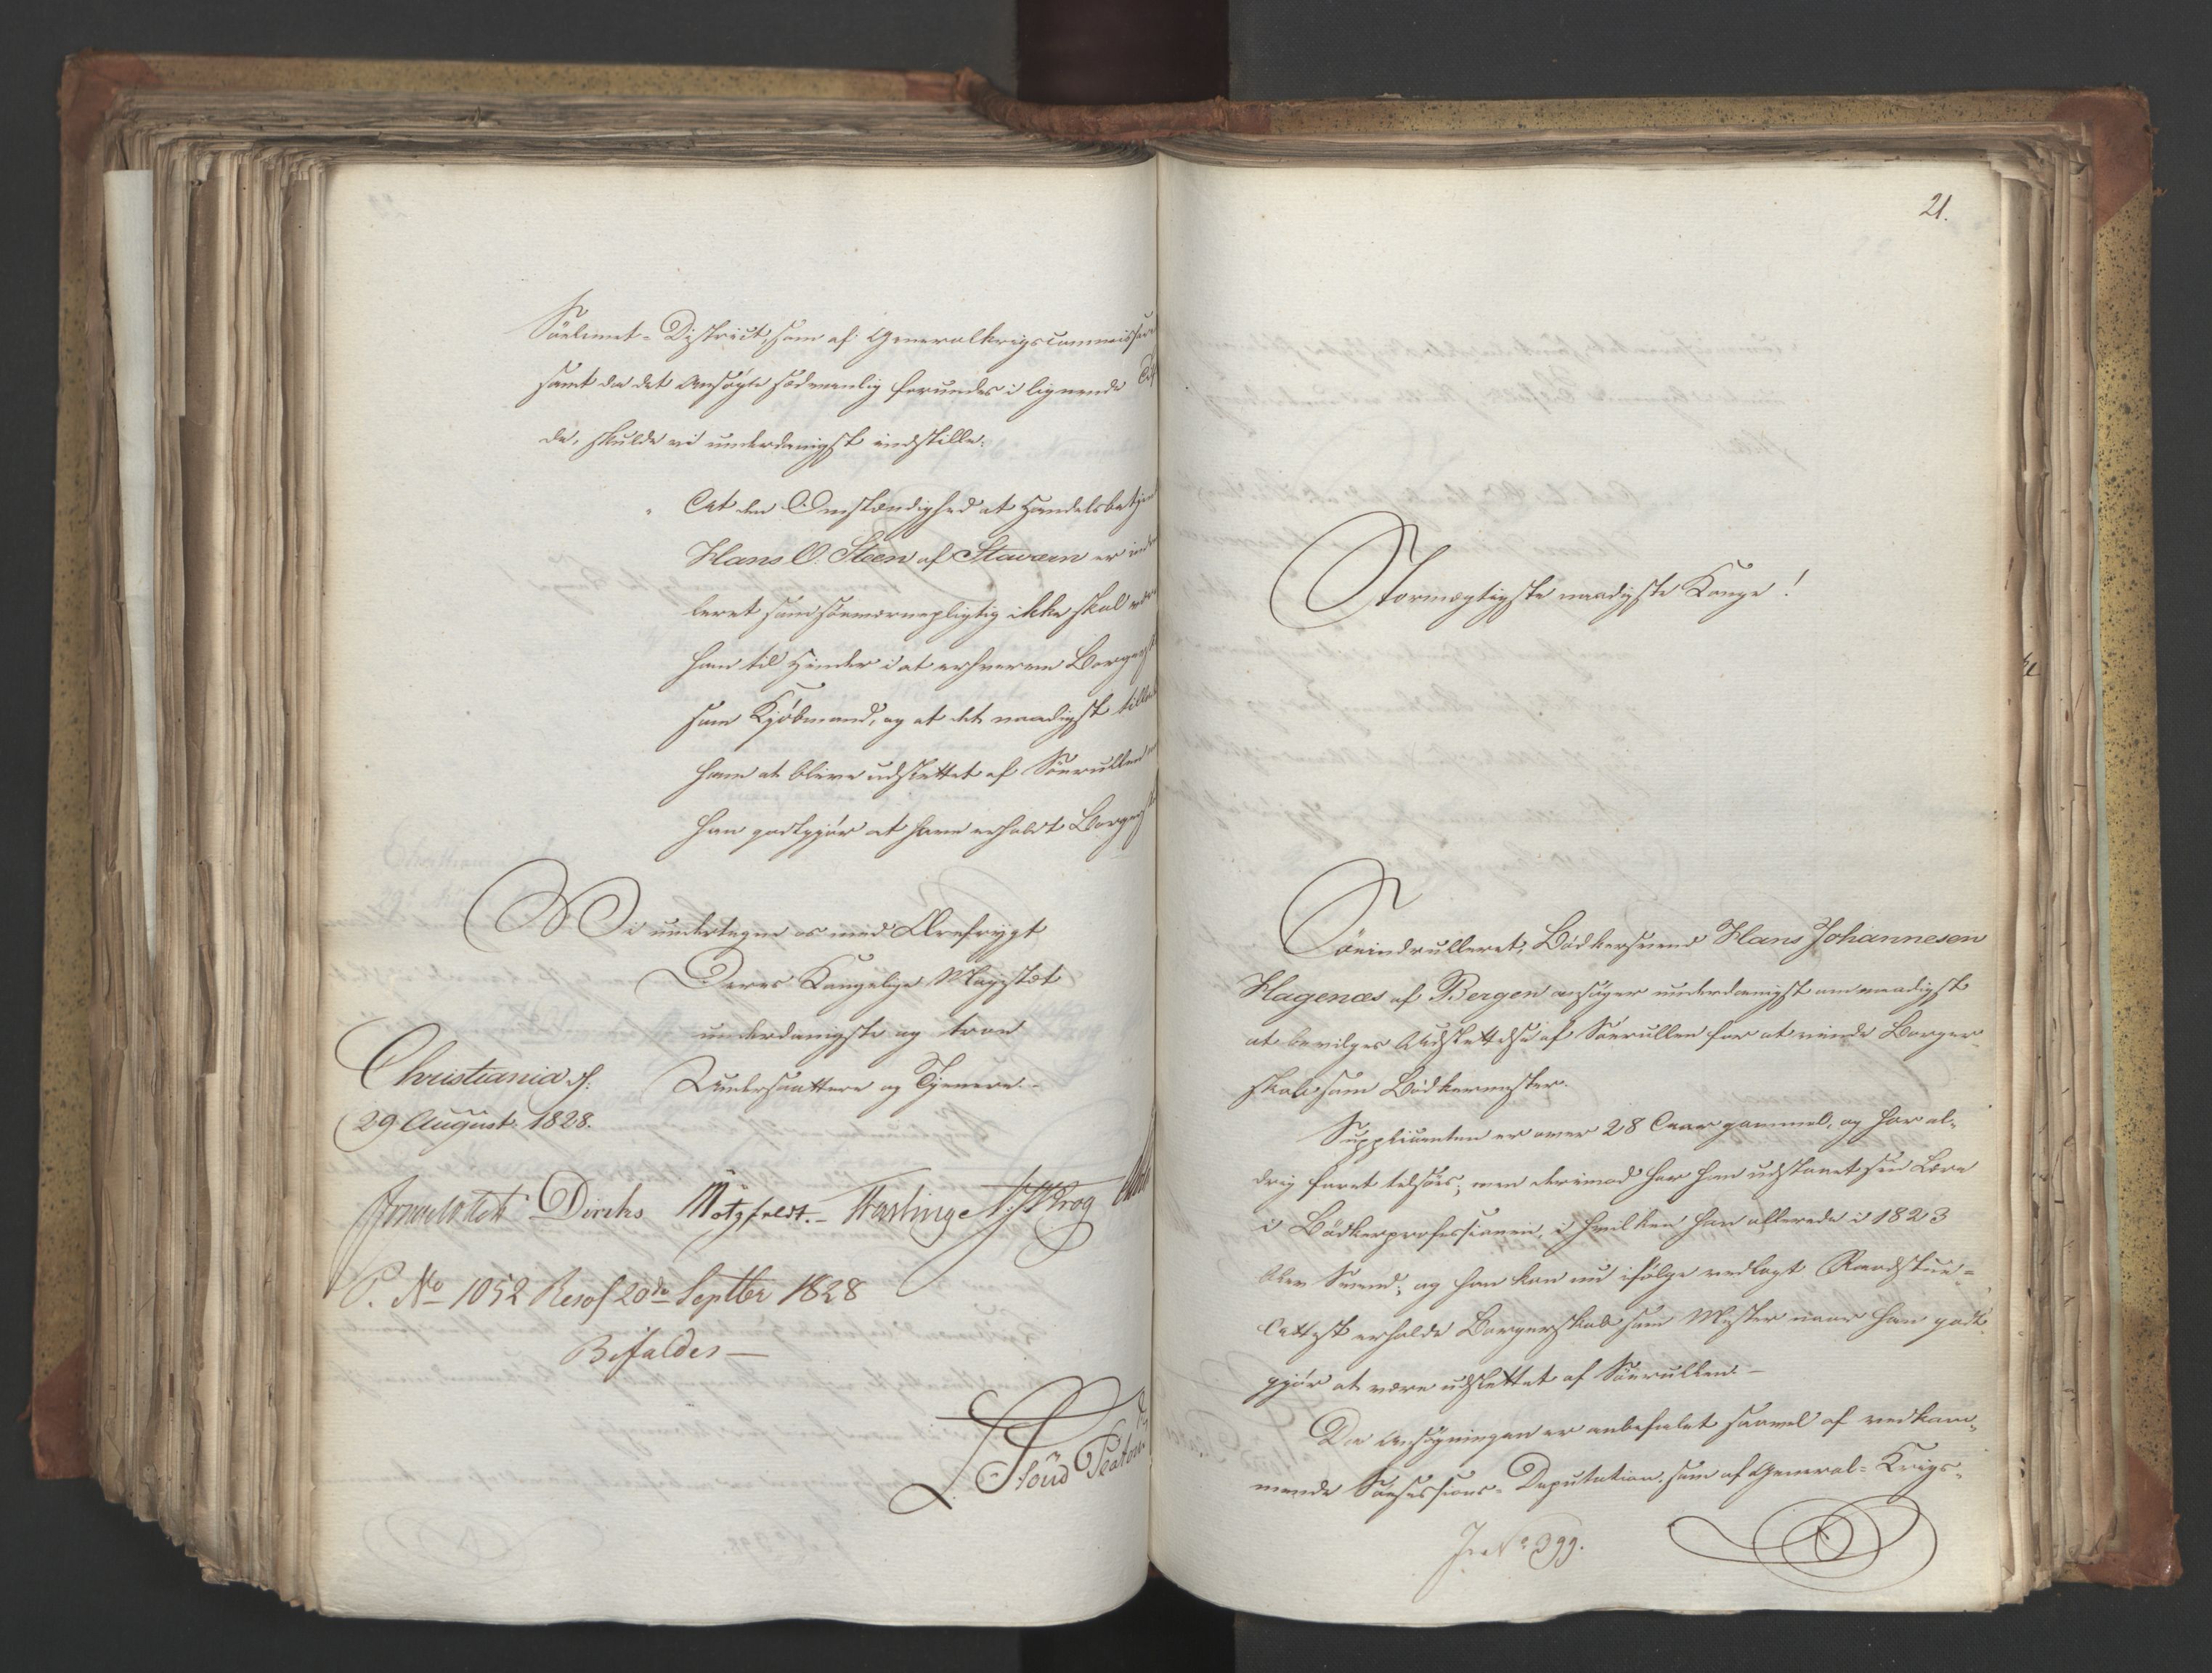 Söelimit-District, som af Generalkrigscommissair
samt da det Ansøgte sædvanlig forundes i lignende
de, skulde vi underdanigst indstille:
At den Omstændighed at Handelsbetjent
Hans O. Steen af Staværn er ind
leret som søeværnepligtig ikke skal være
ham til Hinder i at erhverve Borger
som Kjöbmand, og at det naadigst tillad
ham at blive udslettet af Söerullen
han godtgjør at have erholdt Borger
Vi undertegne os med Ærefrygt
Deres Kongelige Majestæt
underdanigste og troe
Undersaattere og Tjenere.
Christiania d:
29 August 1828.
Diriks Motzfeldt.- N: J Krog
P. No 1052 Resol 20de Septbr 1828
Bifaldes—
21.
Stormægtigste naadigste Konge!
Söeindrulleret, Bödkersvend Hans Johannesen
Hagenæs af Bergen ansøger underdanigst om naadigst
at bevilges Udslettelse af Söerullen for at vinde Borger-
skab som Bödkermester.
Supplicanten er over 28 Aar gammel, og har al-
drig faret tilsöes; men derimod har han udstaaet sin Lære
i Bödkerprofessionen, i hvilken han allerede i 1823
blev Svend; og han kan nu ifølge vedlagt Raadstue=
Attest erholde Borgerskab som Mester naar han godt-
gjør at være udslettet af Söerullen.—
Da Ansøgningen er anbefalet saavel af vedkom-
mende Söesessions-Deputation, som af General-Krigs-
Jr No 399.